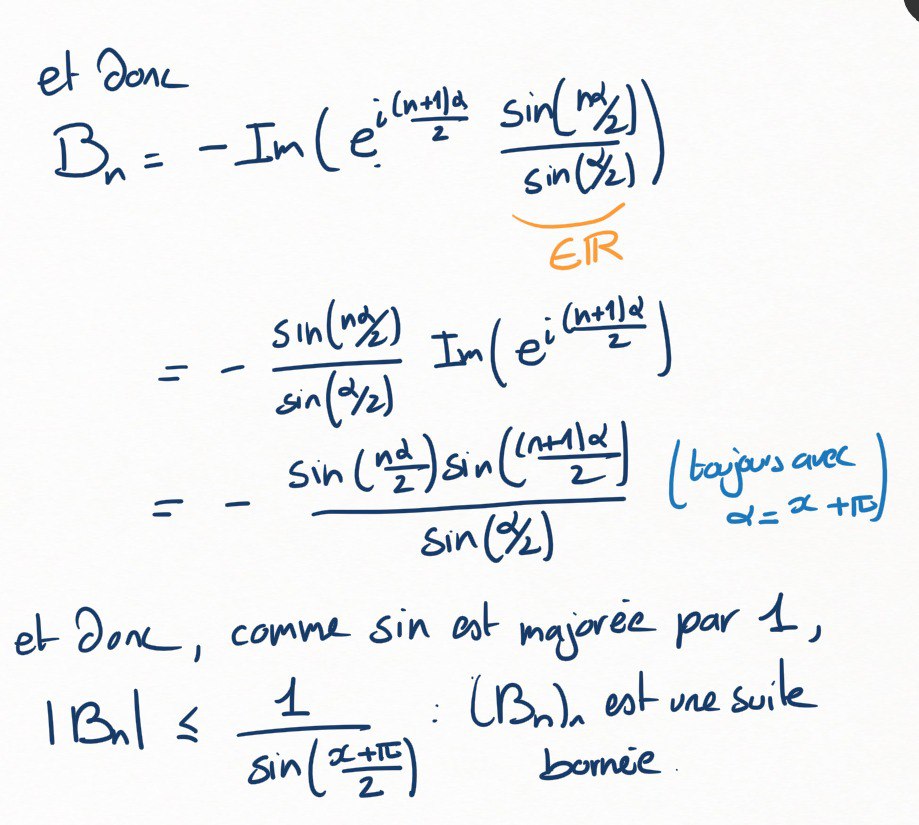 et donc
Bₙ = - Im( e^{i (n+1)α/2} sin(nα/2) / sin(α/2) )
∈ℝ
= - sin(nα/2) / sin(α/2) Im( e^{i (n+1)α/2} )
= - sin(nα/2) sin((n+1)α/2) / sin(α/2) (toujours avec
α = x + π)
et donc, comme sin est majorée par 1,
|Bₙ| ≤ 1 / sin((x+π)/2) : (Bₙ)ₙ est une suite
bornée.